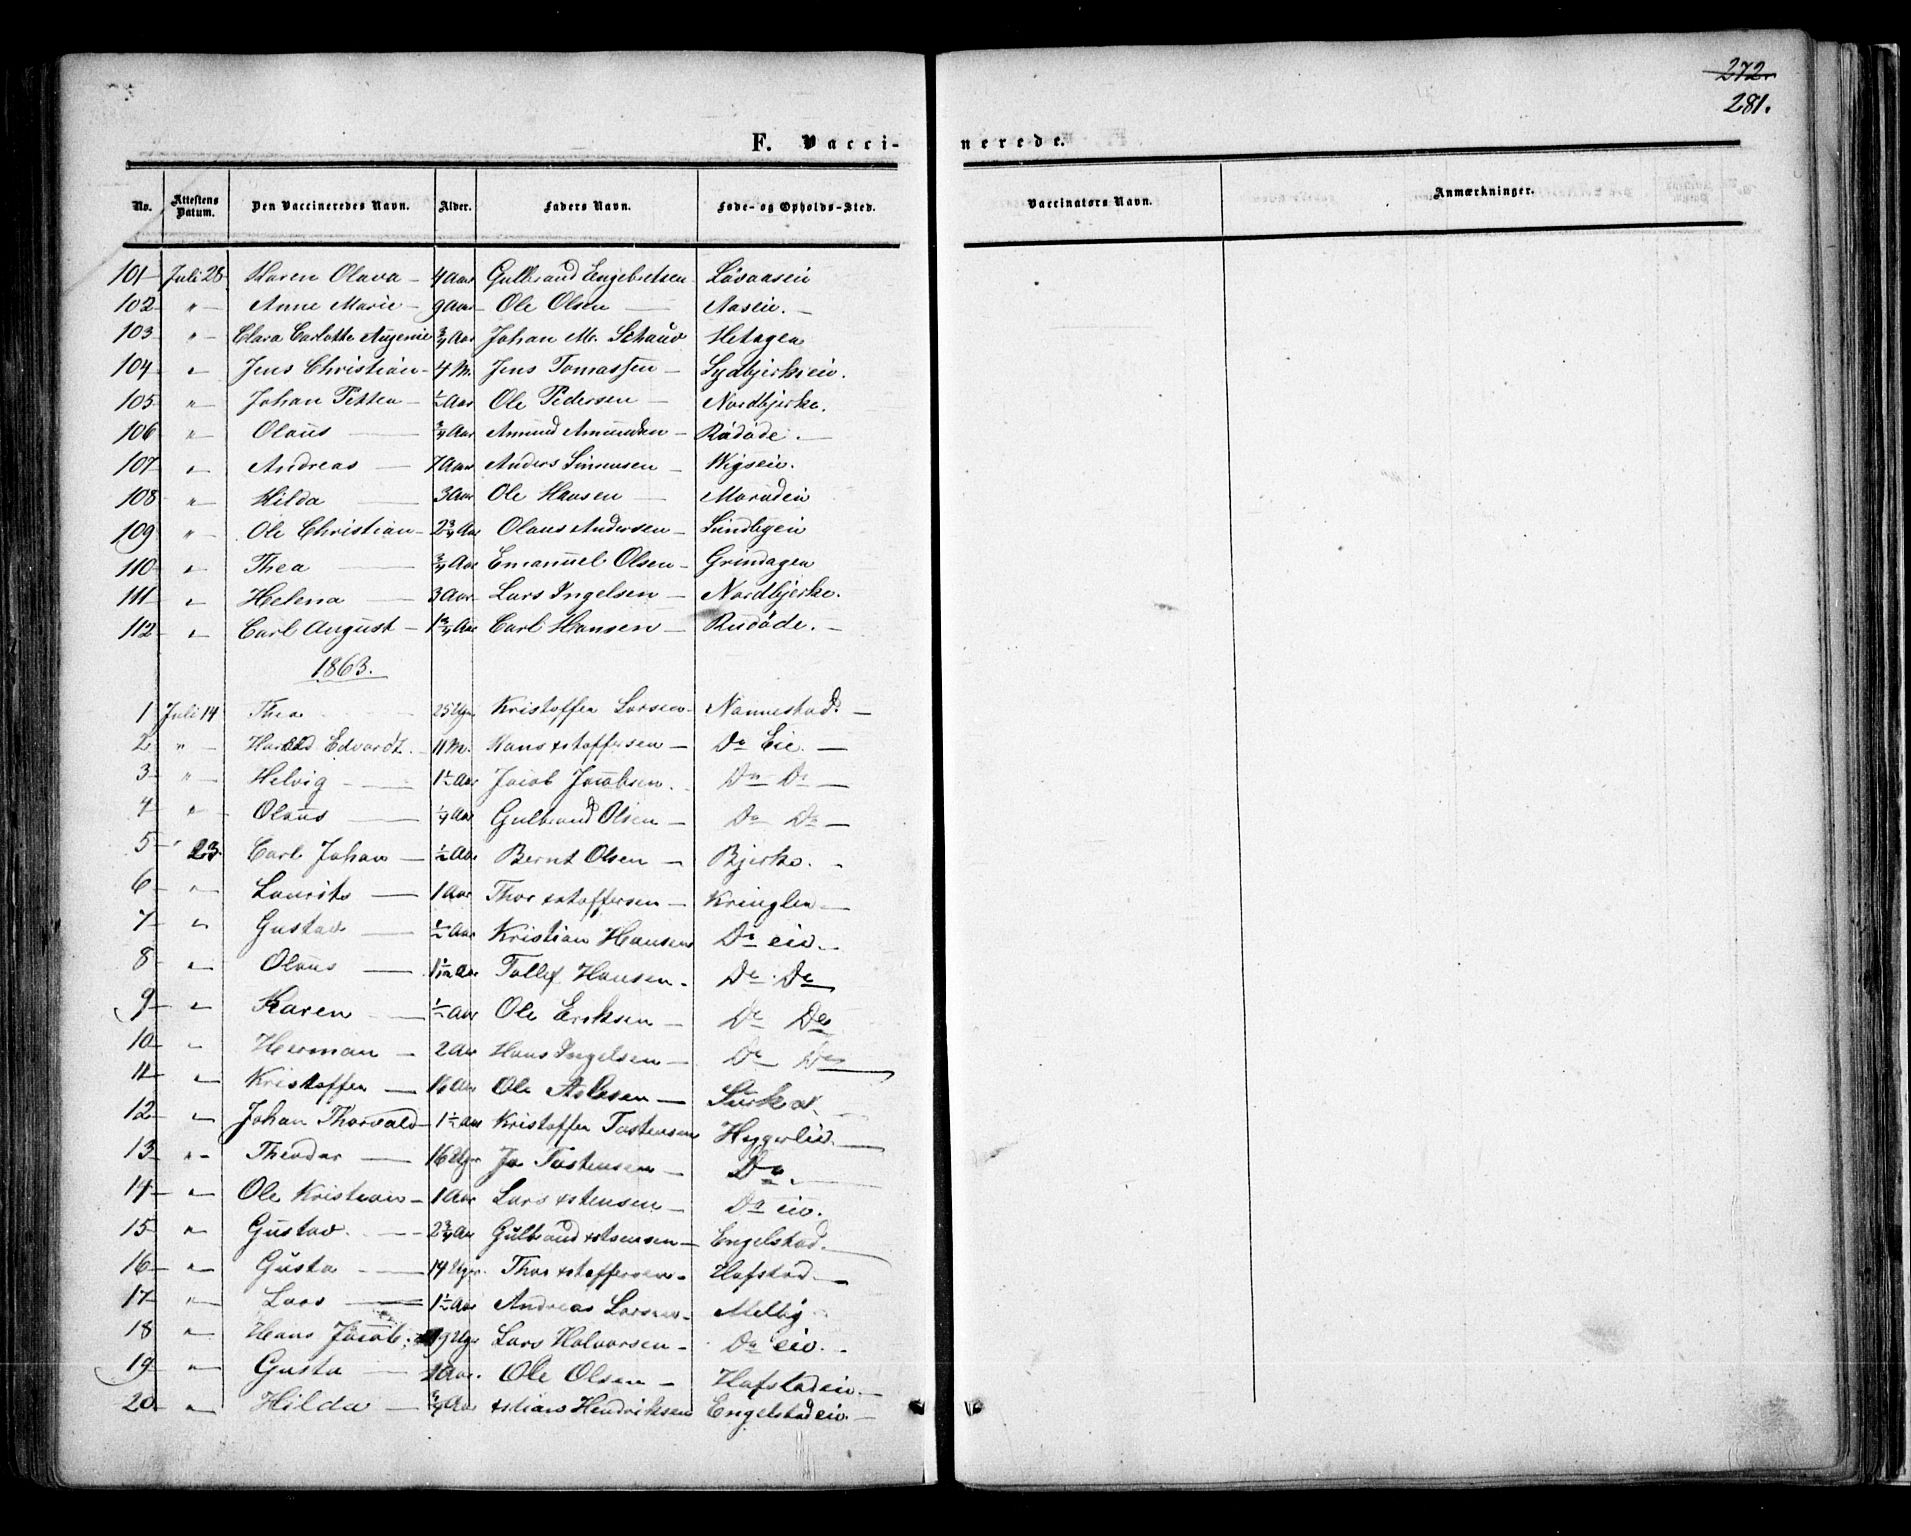 272.
281.
F. Vaccinerede.
No. Attestens Datum. Den Vaccineredes Navn. Alder. Faders Navn. Føde- og Opholds-Sted. Vaccinatørs Navn. Anmærkninger.
101 Juli 28 Karen Olava 4 Aar Gulbrand Engebretsen Løvaaseie
102 " Anne Marie 9 Aar Ole Olsen Aaseie.
103 " Clara Carlotte Augenie 3/4 Aar Johan M. Schauv Hetagen
104 " Jens Christian 4 M. Jens Tomassen Sydbjerkeeie.
105 " Johan Petter 1/2 Aar Ole Pedersen Nordbjerke.
106 " Olaus 3/4 Aar Amund Amundsen Rudøde.
107 " Andreas 7 Aar Anders Simensen Wigseie.
108 " Hilda 3 Aar Ole Hansen
109 " Ole Christian 2 3/4 Aar Olaus Andersen Sundbyeie
110 " Thea 3/4 Aar Emanuel Olsen Grindagen
111 " Helena 3 Aar Lars Ingelsen Nordbjerke.
112 " Carl August 1 3/4 Aar Carl Hansen Rudøde.
1863.
1 Juli 14 Thea 25 Uger Kristoffer Larsen Nannestad.
2 " Harald Edvardt 11 M. Hans xstoffersen Do Eie.
3 " Helvig 1 1/2 Aar Jacob Jacobsen. Do Do
4 " Olaus 1/4 Aar Gulbrand Olsen Do Do
5 " 23 Carl Johan 1/2 Aar Bernt Olsen Bjerke.
6 " Laurits 1 Aar Thor xstoffersen Kringler
7 " Gustav 1/2 Aar Kristian Hansen Do eie.
8 " Olaus 1 1/12 Aar Tollef Hansen Do Do
9 " Karen 1/2 Aar Ole Eriksen Do Do
10 " Herman 2 Aar Hans Ingelsen Do Do
11 " Kristoffer Ole Aslesen
12 " Johan Thorvald 1 1/2 Aar Kristoffer Tostensen Heggerlie.
13 " Theodor 16 Uger Jo Tostensen Do
14 " Ole Kristian 1 Aar Lars xstensen Do eie.
15 " Gustav 2 3/4 Aar Gulbrand Engelstad.
16 " Gusta 14 Uger. Thor xstoffersen Hafstad
17 " Lars 1 1/2 Aar Andreas Larsen Melby
18 " Hans Jacob 19 Uger Lars Halvorsen Do eie.
19 " Gusta 1 Aar. Ole Olsen Hafstadeie.
20 " Hilda 3/4 Aar xstian Hendriksen Engelstadeie.